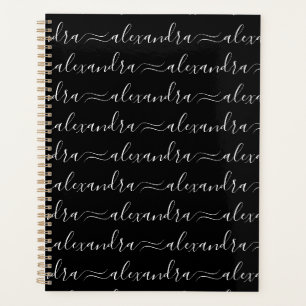 dra~alexandra~a
alexandra~alexandra
dra~alexandra~alex
alexandra~alexandra
dra~alexandra~alex
alexandra~alexandra
dra~alexandra~alex
alexandra~alexandra
dra~alexandra~alex
alexandra~alexandra